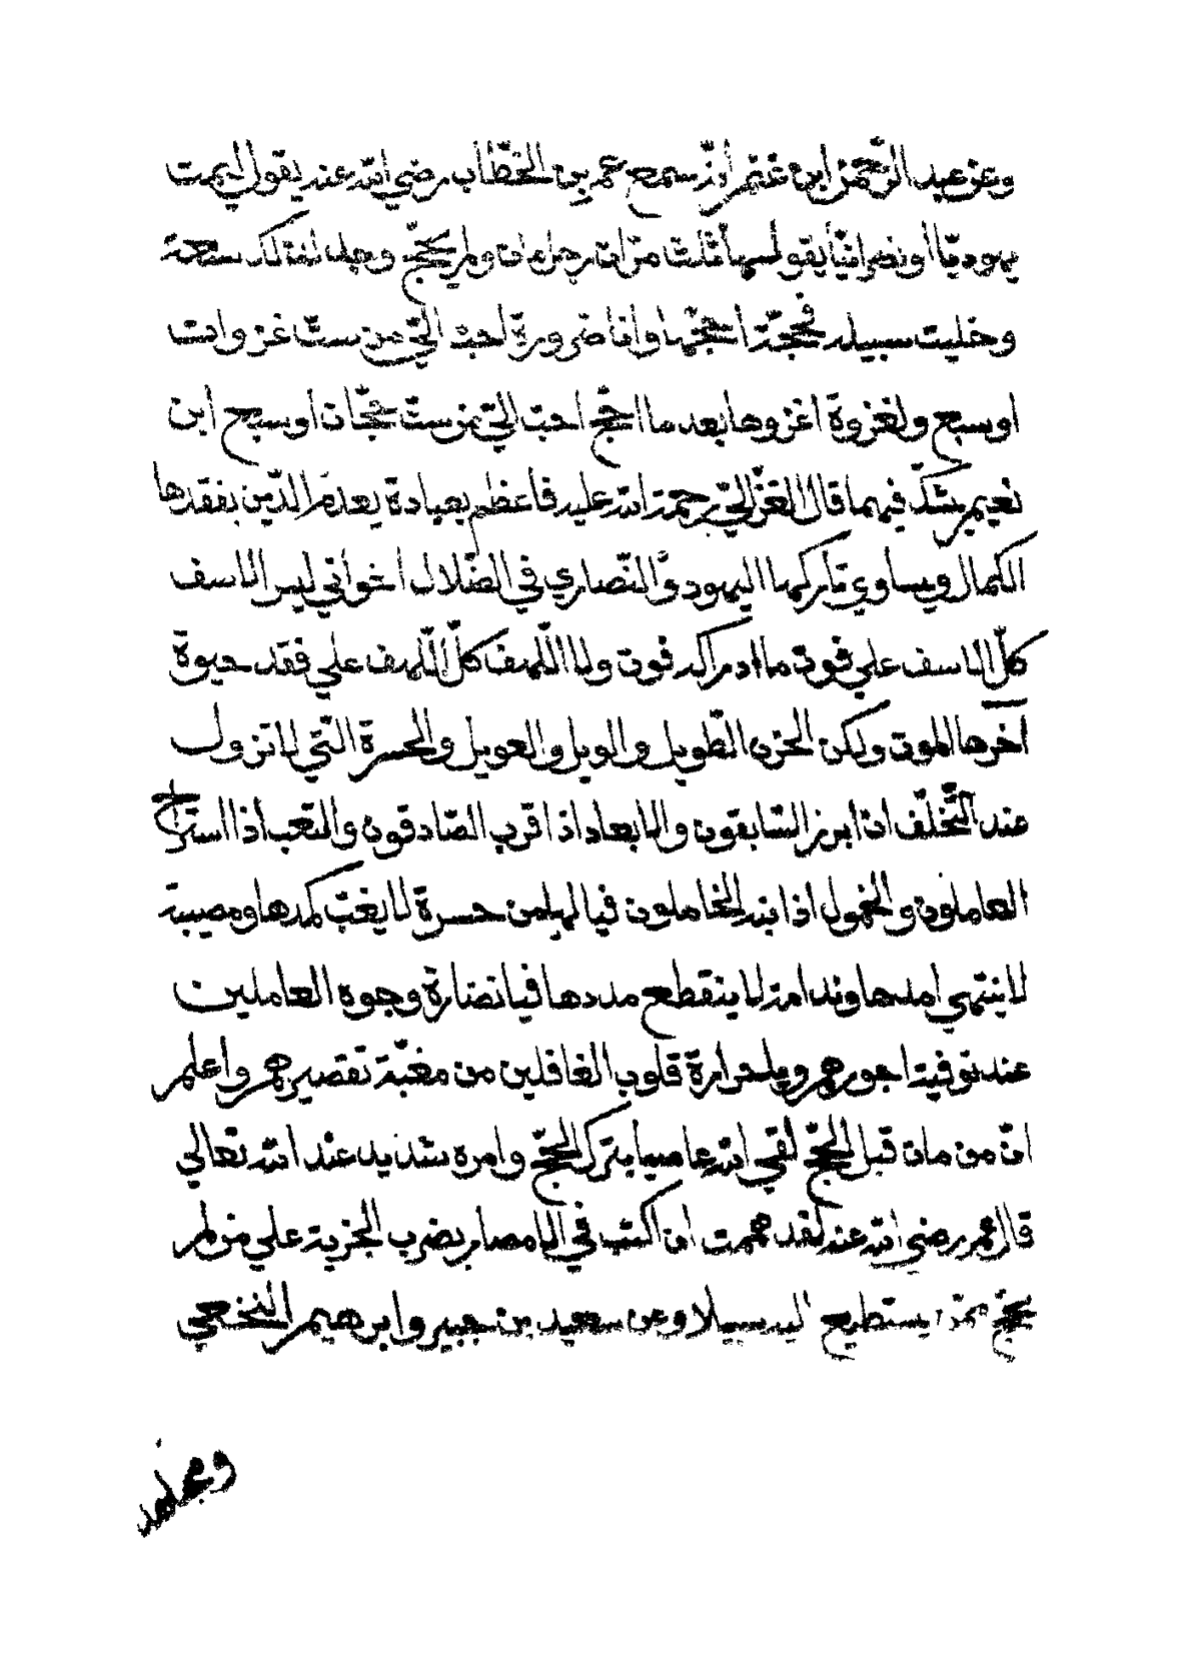 وعن عبد الرّحمن ابن غنم أنّه سمع عمر بن الخطّاب رضي الله عنه يقول ليمت
يهوديّا أو نصرانيّا يقولها ثلث مرّات رجل مات ولم يحجّ وجد لذلك سعة
وخليت سبيله فحجّة احجّها وانا ضرورة احبّ اليّ من ستّ غزوات
او سبع ولغزوة اغزوها بعد ما احجّ احبّ اليّ من ستّ حجّات او سبع ابن
نعيم يشكّ فيهما قال الغزّاليّ رحمة الله عليه فاعظم بعبادة يعدم الدّين بفقدها
الكمال ويساوي تاركها اليهود والنّصاري في الضّلال اخواني ليس الاسف
كلّ الاسف علي فوت ما ادراكه فوت ولا اللّهف كلّ اللّهف علي فقد حيوة
آخرها الموت ولكن الحزن الطّويل والويل والعويل والحسرة الّتي لا تزول
عند التّخلّف اذا برز السّابقون والابعاد اذا قرب الصّادقون والتعب اذا استراح
العاملون والخمول اذا انتبه الخاملون فيا لها من حسرة لا يغبّ كمدها ومصيبة
لا ينتهي امدها وندامة لا ينقطع مددها فيا نضارة وجوه العاملين
عند توفية اجورهم ويا حرارة قلوب الغافلين من مغبّة تقصيرهم واعلم
انّ من مات قبل الحجّ لقي الله عاصيا بترك الحجّ وامره شديد عند الله تعالي
قال عمر رضي الله عنه لقد هممت ان اكتب في الامصار بضرب الجزية علي من لم
يحجّ ممّن يستطيع اليه سبيلا وعن سعيد بن جبير وابرهيم النخعي
ومجاهد